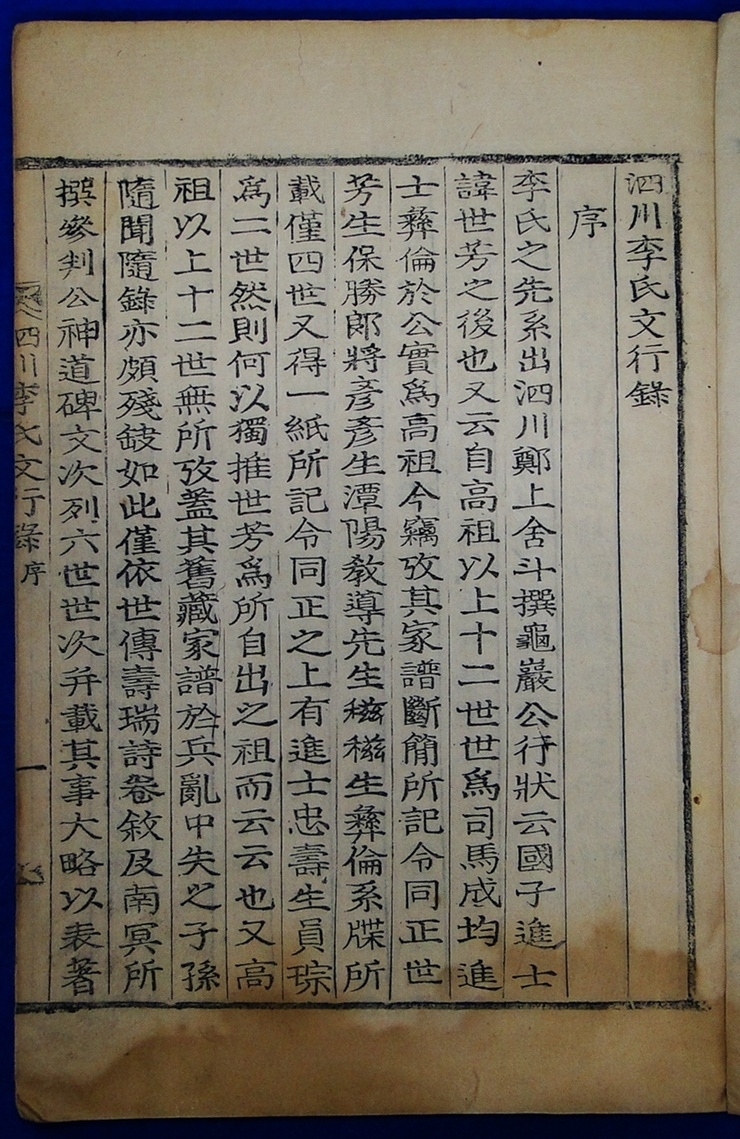 泗川李氏文行錄
序
李氏之先系出泗川鄭上舍斗撰龜巖公行狀云國子進士
諱世芳之後也又云自高祖以上十二世世爲司馬成均進
士彝倫於公實爲高祖今竊攷其家譜斷簡所記令同正世
芳生保勝郞將彦彦生潭陽敎導先生稵稵生彝倫系牒所
載僅四世又得一紙所記令同正之上有進士忠壽生員琮
爲二世然則何以獨推世芳爲所自出之祖而云云也又高
祖以上十二世無所攷蓋其舊藏家譜於兵亂中失之子孫
隨聞隨錄亦頗殘缺如此僅依世傳壽瑞詩卷敘及南冥所
撰參判公神道碑文次列六世世次并載其事大略以表著
泗川李氏文行錄 序 一